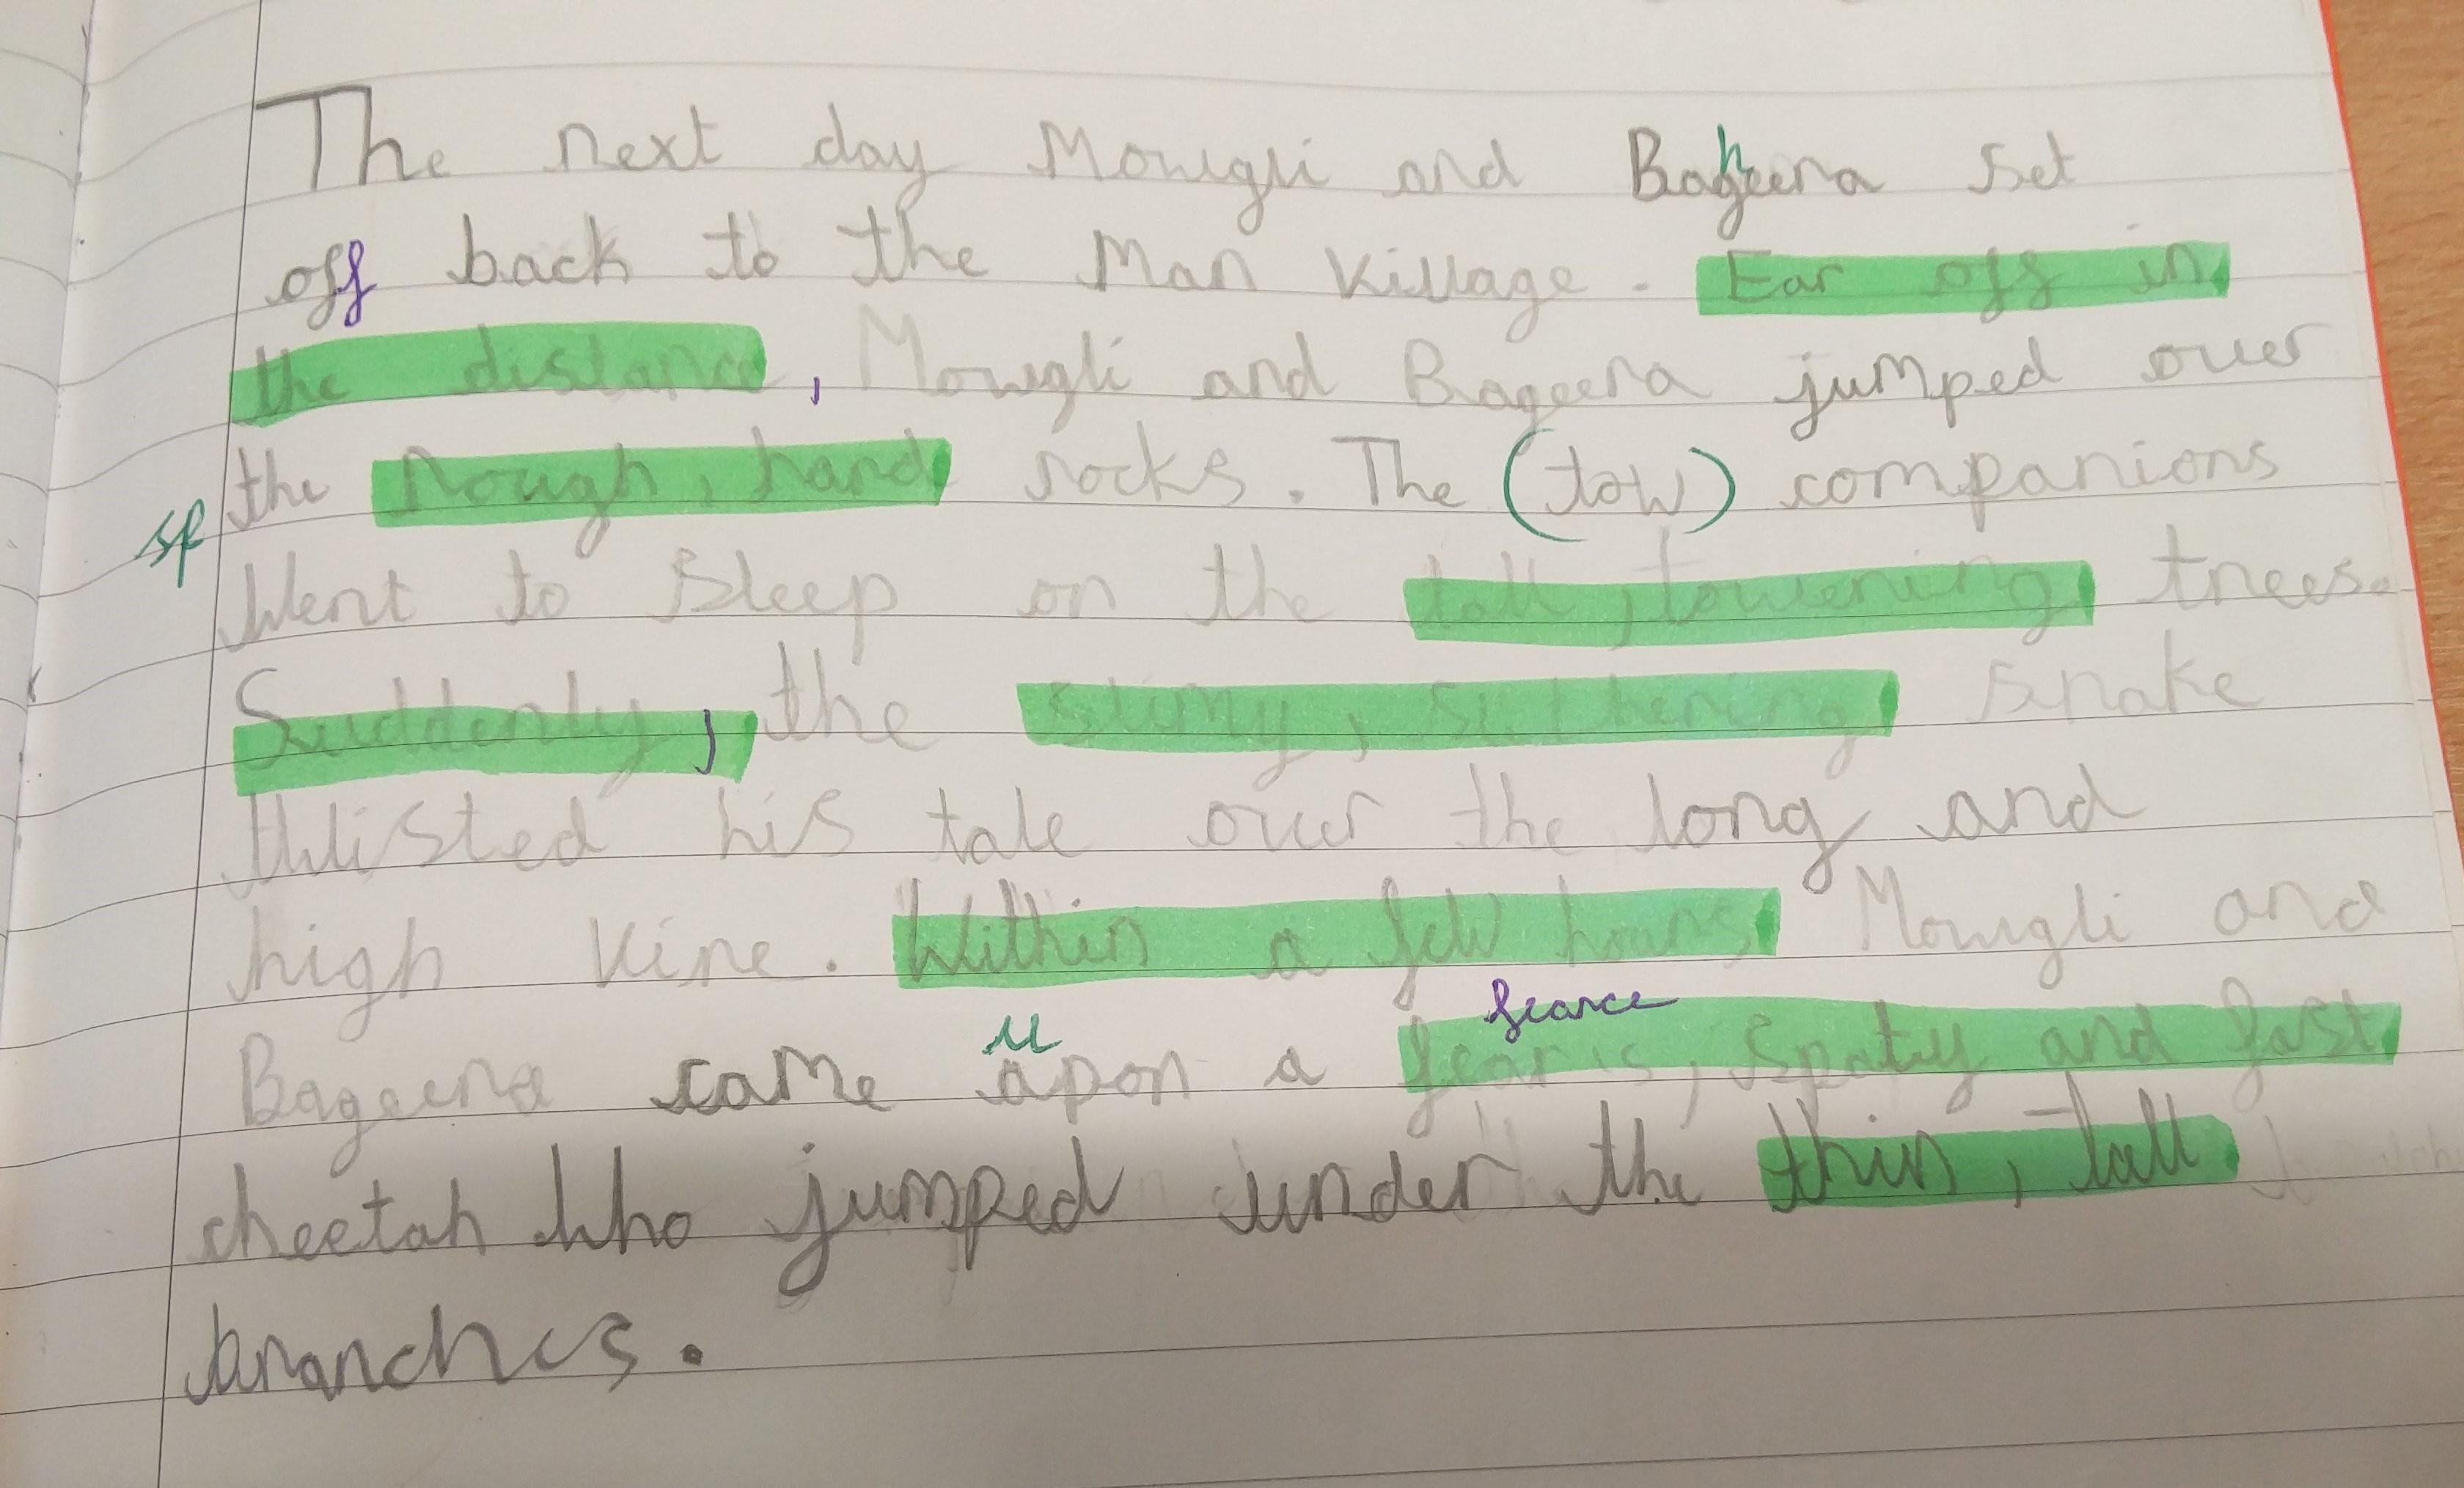 The next day Mowgli and Bagheera set
off back to the Man Village. Far off in
the distance, Mowgli and Bageera jumped over
the rough, hard rocks. The (tow) companions
sp
Went to sleep on the tall, towering trees.
Suddenly, the slimy, slithering snake
twisted his tale over the long and
high vine. Within a few hours Mowgli and
fearce
u
Bageera came apon a fearis, spoty and fast
cheetah who jumped under the thin, tall
branches.